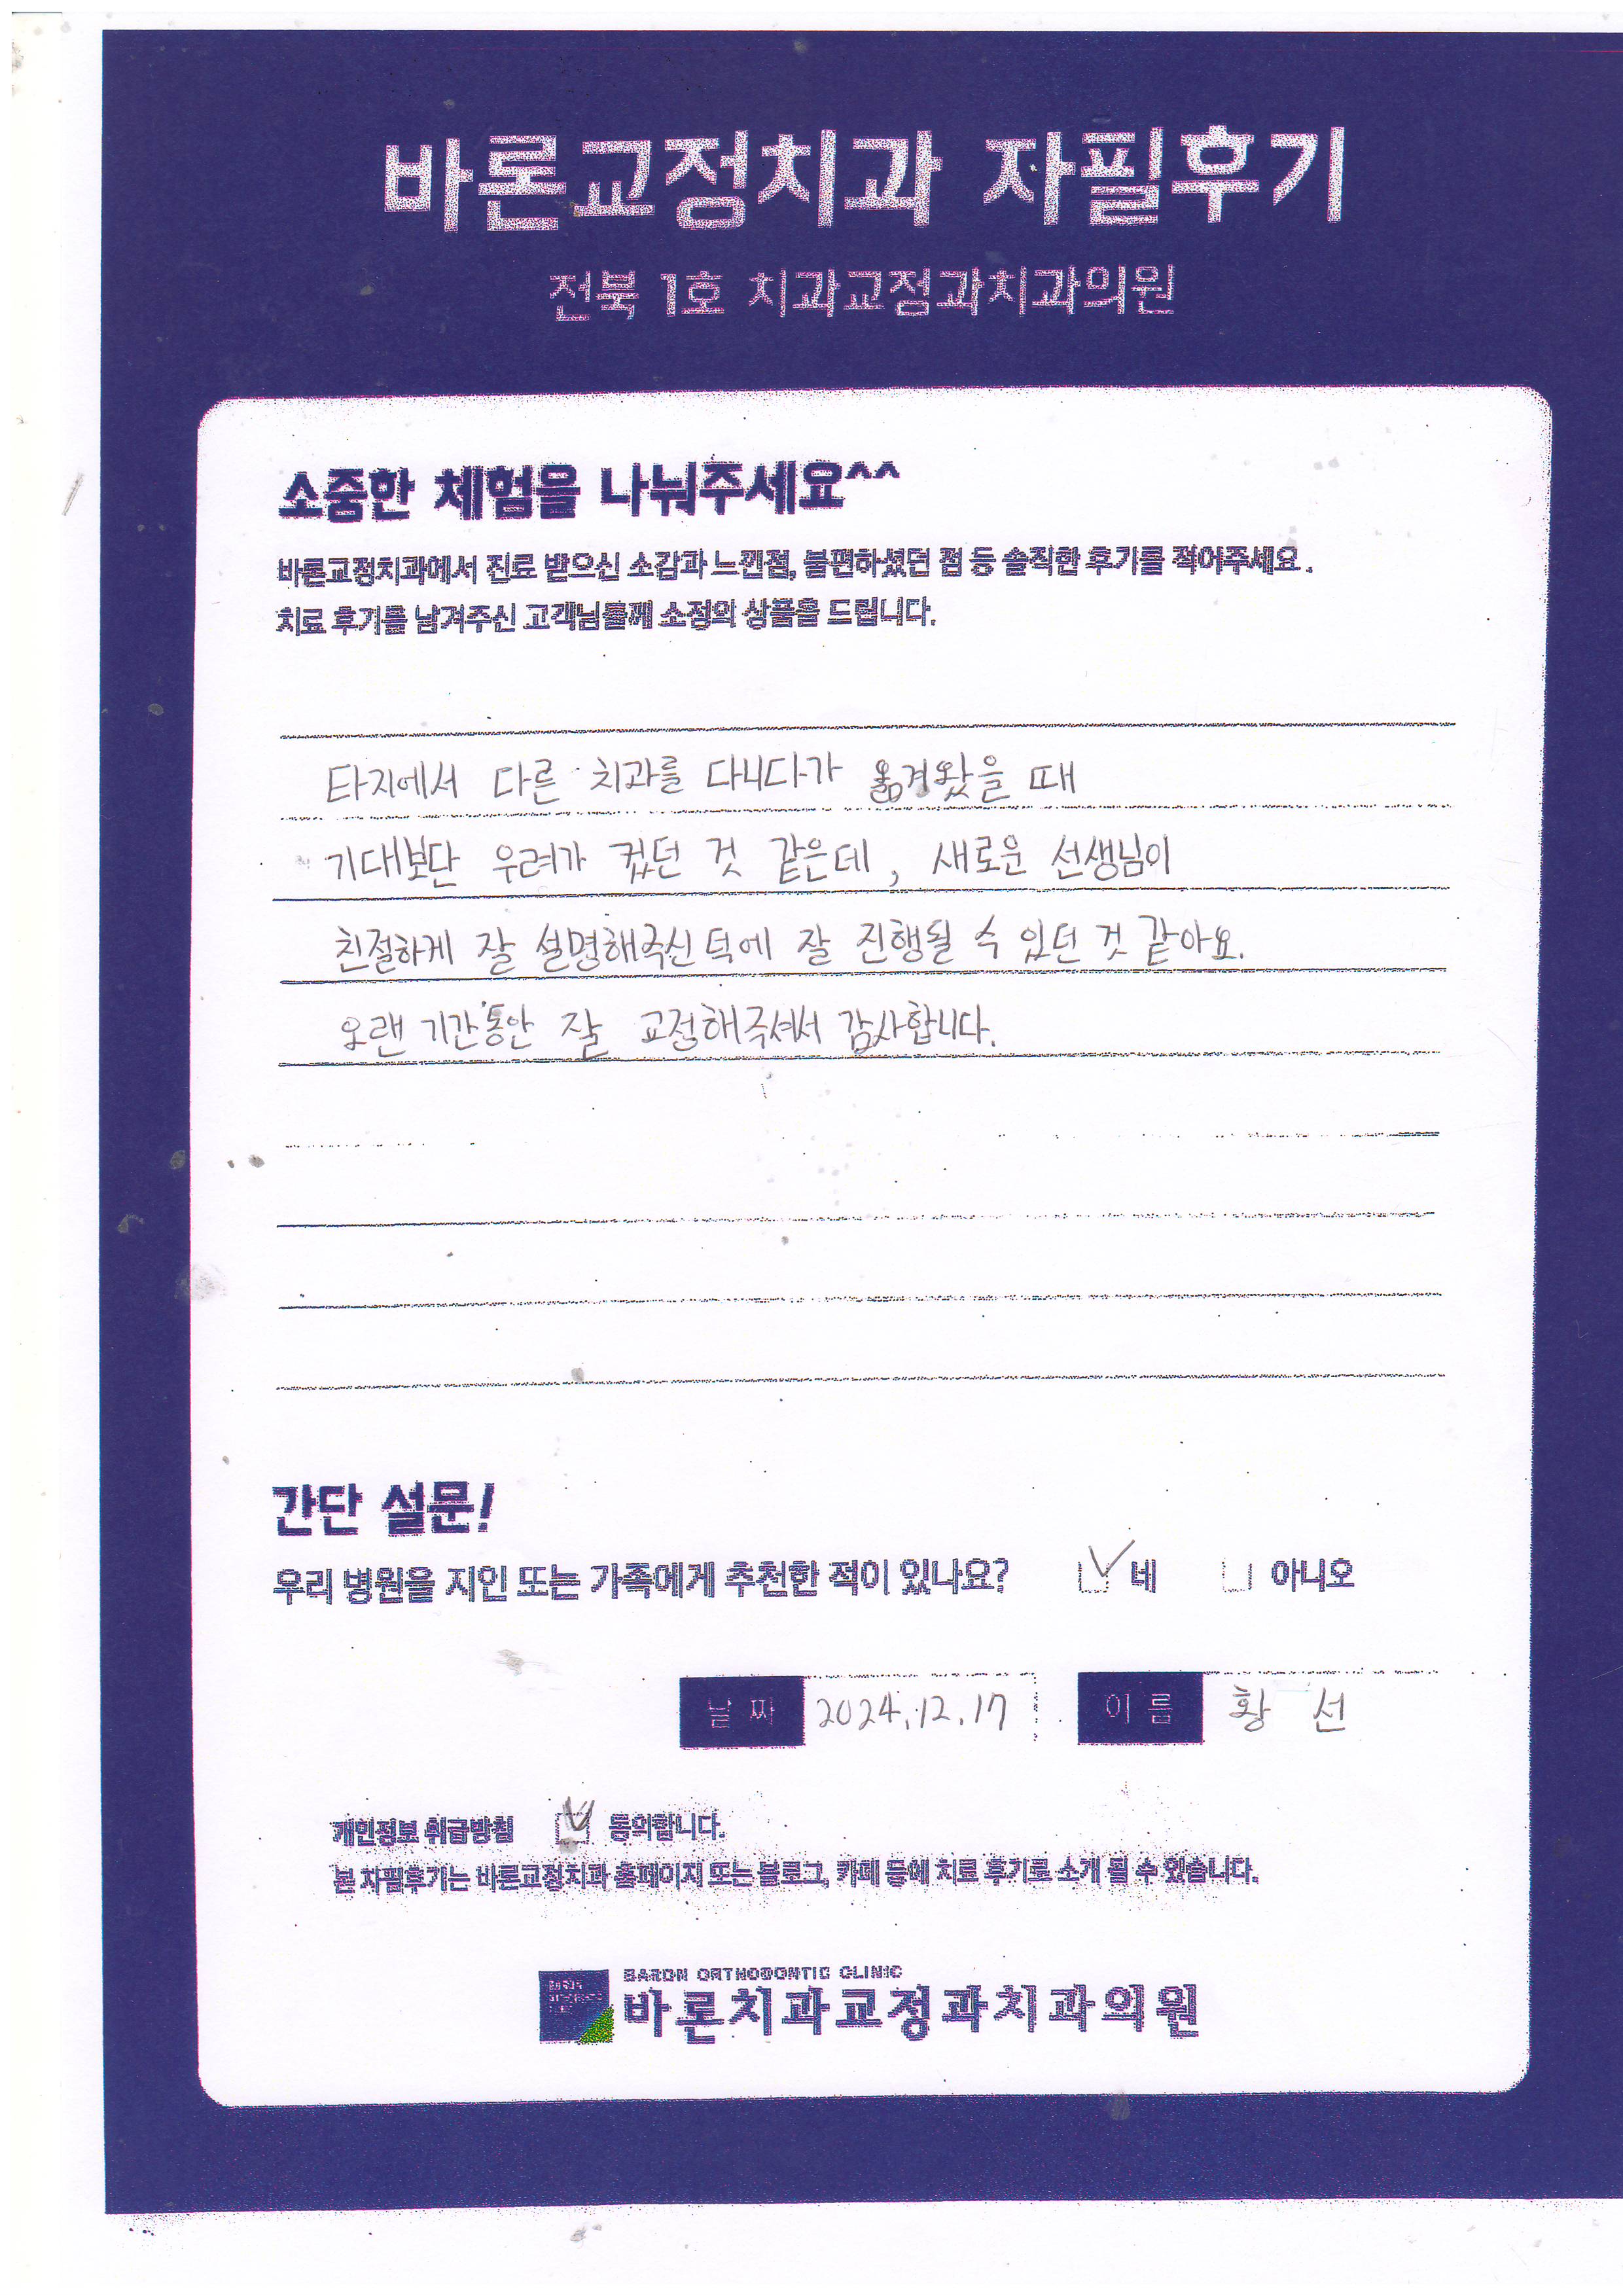 바론교정치과 자필후기
전북 1호 치과교정과치과의원
소중한 체험을 나눠주세요^^
바른교정치과에서 진료 받으신 소감과 느낀점, 불편하셨던 점 등 솔직한 후기를 적어주세요.
치료 후기를 남겨주신 고객님들께 소정의 상품을 드립니다.
타지에서 다른 치과를 다니다가 옮겨왔을 때
기대보단 우려가 컸던 것 같은데, 새로운 선생님이
친절하게 잘 설명해주신 덕에 잘 진행될 수 있던 것 같아요.
오랜 기간동안 잘 교정해주셔서 감사합니다.
간단 설문!
우리 병원을 지인 또는 가족에게 추천한 적이 있나요? 네 아니오
날짜 2024.12.17 이름 황 선
개인정보 취급방침 동의합니다.
본 자필후기는 바른교정치과 홈페이지 또는 블로그, 카페 등에 치료 후기로 소개 될 수 있습니다.
BARON ORTHODONTIC CLINIC
바론치과교정과치과의원